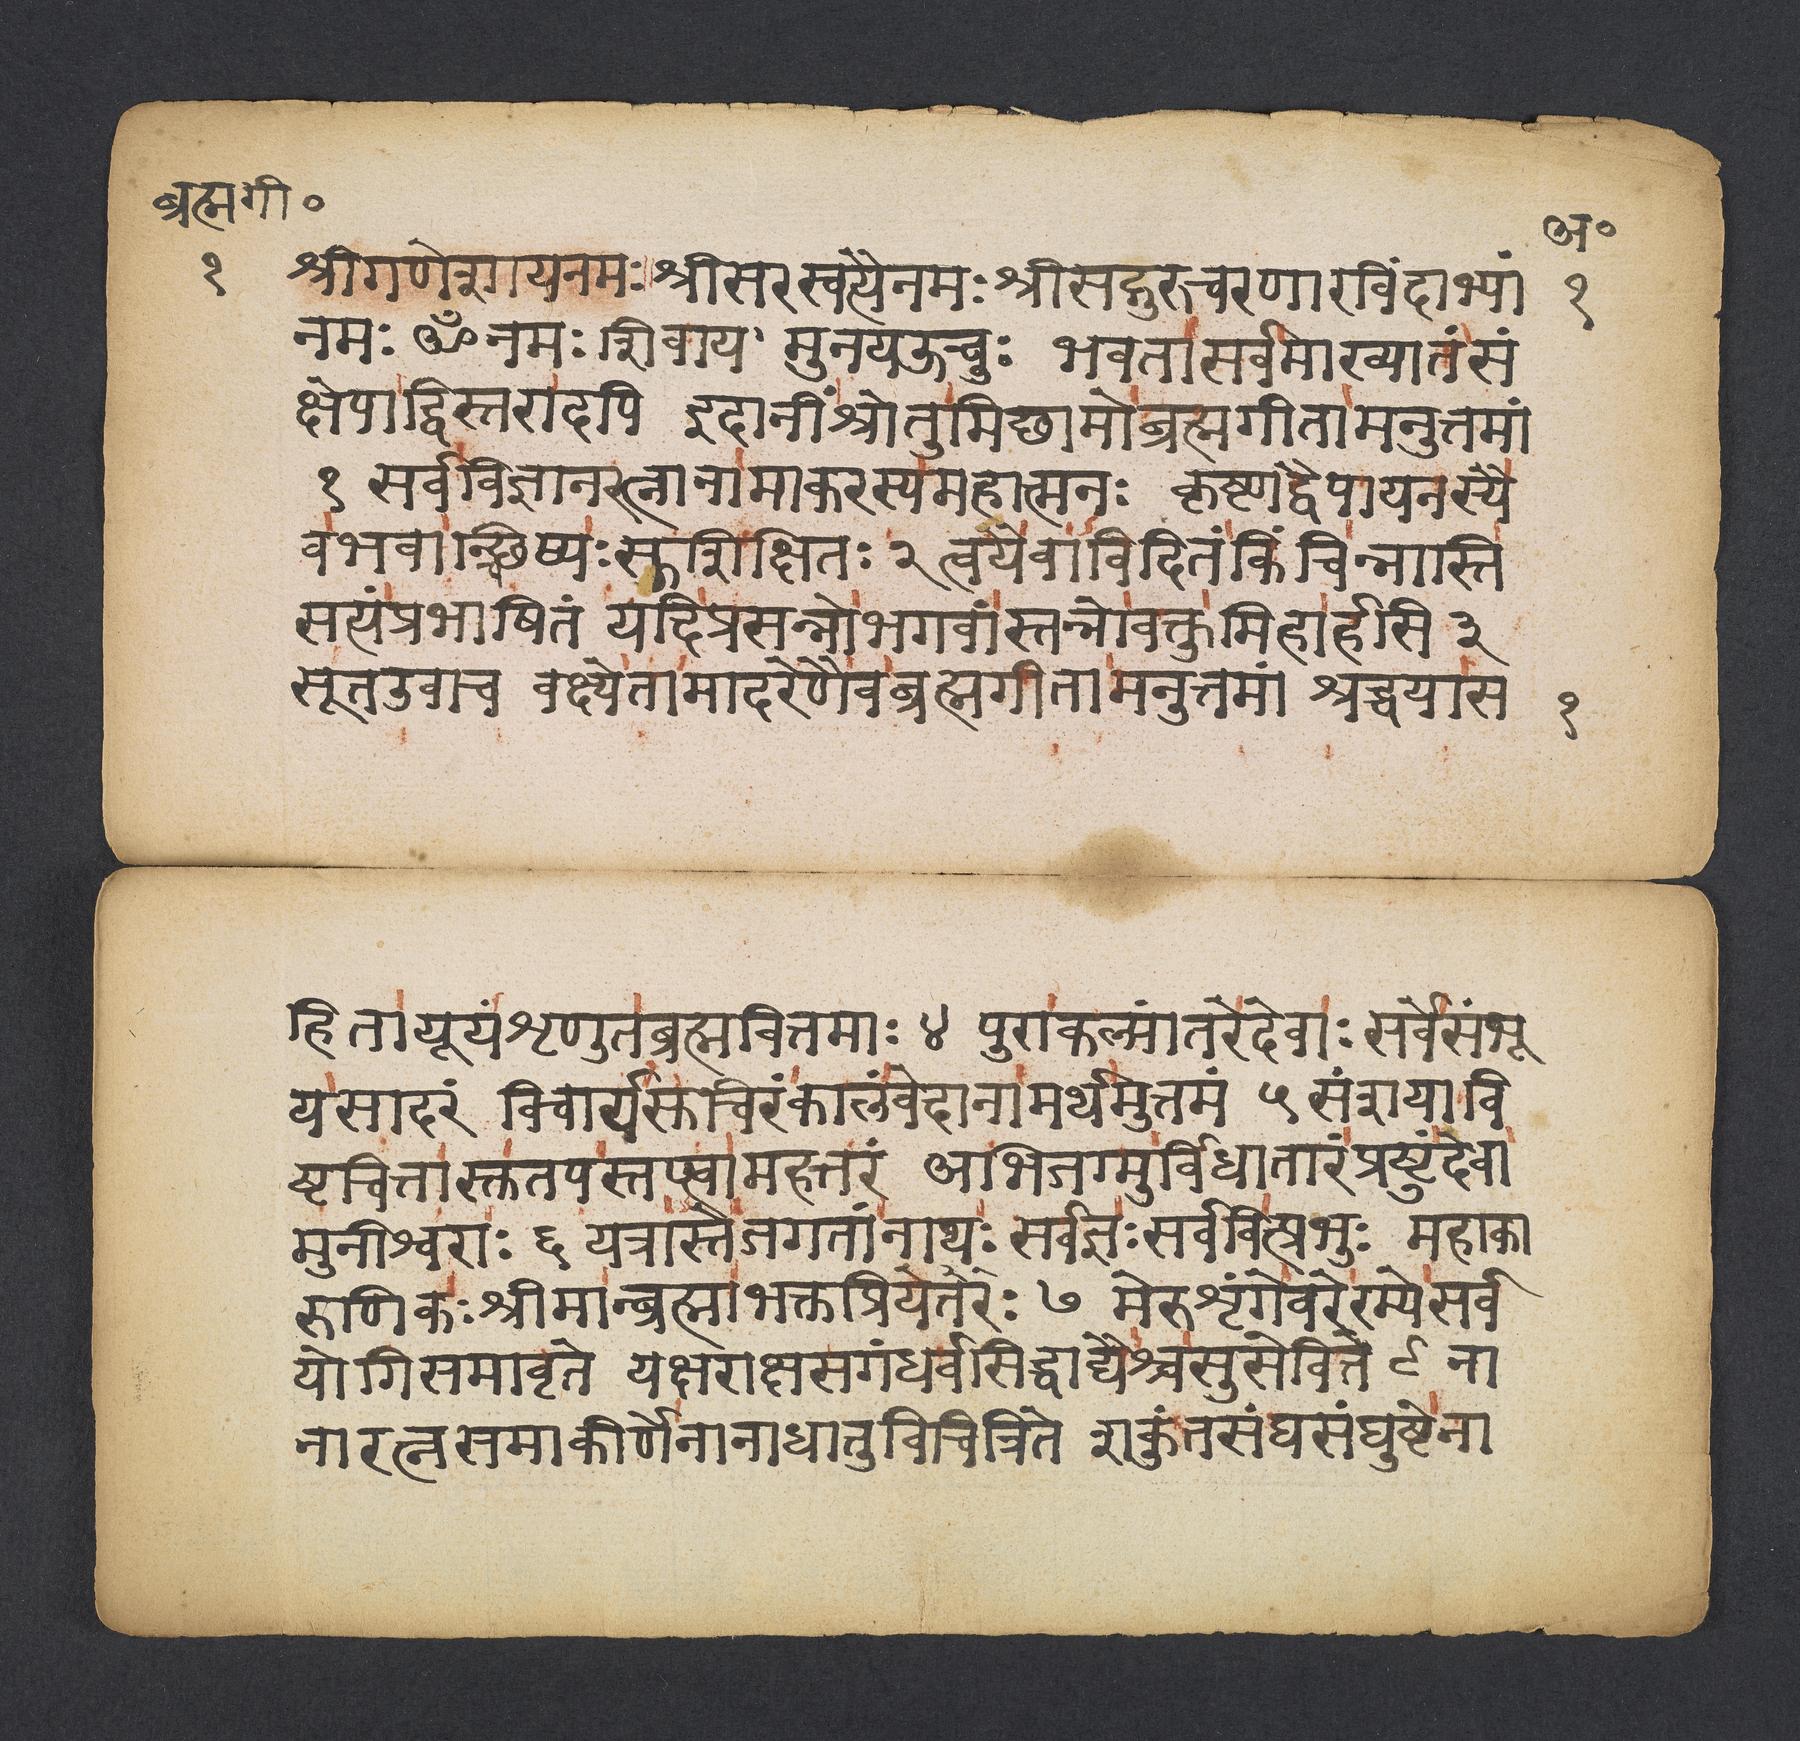 ब्रह्मगी०
अ०
१ श्रीगणेशायनमः श्रीसरस्वत्यैनमः श्रीसद्गुरुचरणारविंदाभ्यां १
नमः ॐनमः शिवाय मुनयऊचुः भवतासर्वमाख्यातंसं
क्षेपाद्विस्तरादपि इदानींश्रोतुमिछामोब्रह्मगीतामनुत्तमां
१ सर्वविज्ञानरत्नानामाकरस्यमहात्मनः कृष्णद्वैपायनस्यै
वभवान्छिष्यःसुशिक्षितः २ त्वयैवाविदितंकिंचिन्नास्ति
सत्यंप्रभाषितं यदिप्रसन्नोभगवांस्तन्नोवक्तुमिहार्हसि ३
सूतउवाच वक्ष्येतामादरेणैवब्रह्मगीतामनुत्तमां श्रद्धयास १
हितायूयंशृणुतब्रह्मवित्तमाः ४ पुराकल्पांतरेदेवाः सर्वेसंभू
यसादरं विचार्यसुचिरंकालंवेदानामर्थमुत्तमं ५ संशयावि
ष्टचित्तास्तुतपस्तप्त्वामहत्तरं अभिजग्मुर्विधातारंप्रष्टुंदेवा
मुनीश्वराः ६ यत्रास्तेजगतांनाथः सर्वज्ञःसर्ववित्प्रभुः महाका
रुणिकःश्रीमान्ब्रह्माभक्तप्रियेतेरः ७ मेरुशृंगेवरेरम्येसर्व
योगिसमावृते यक्षराक्षसगंधर्वसिद्धाद्यैश्चसुसेविते ८ ना
नारत्नसमाकीर्णेनानाधातुविचित्रिते शकुंतसंघसंघुष्टेना